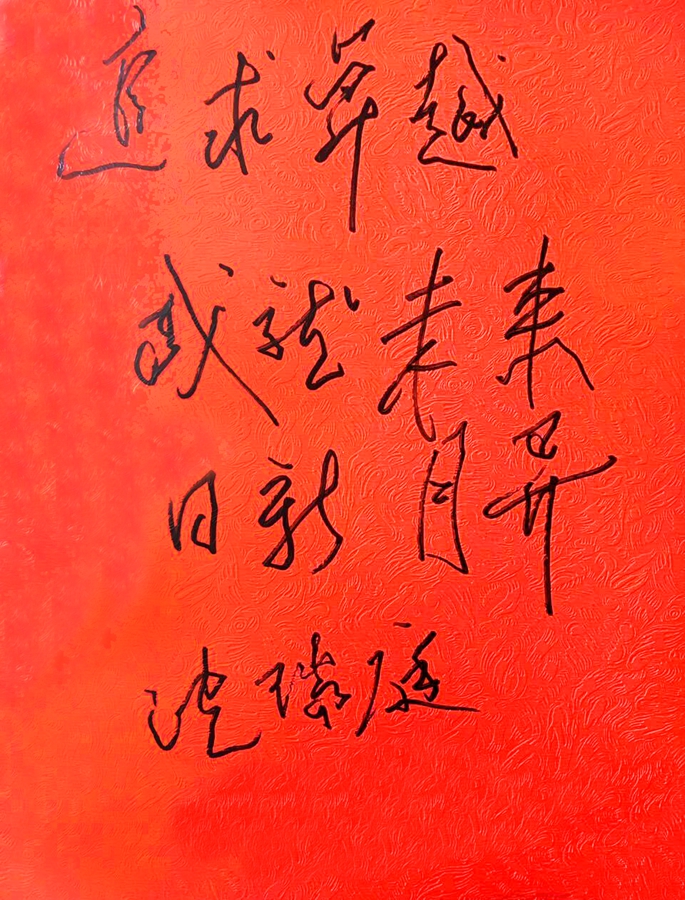 追求卓越
成就未来
日新月异
沈瑞庭